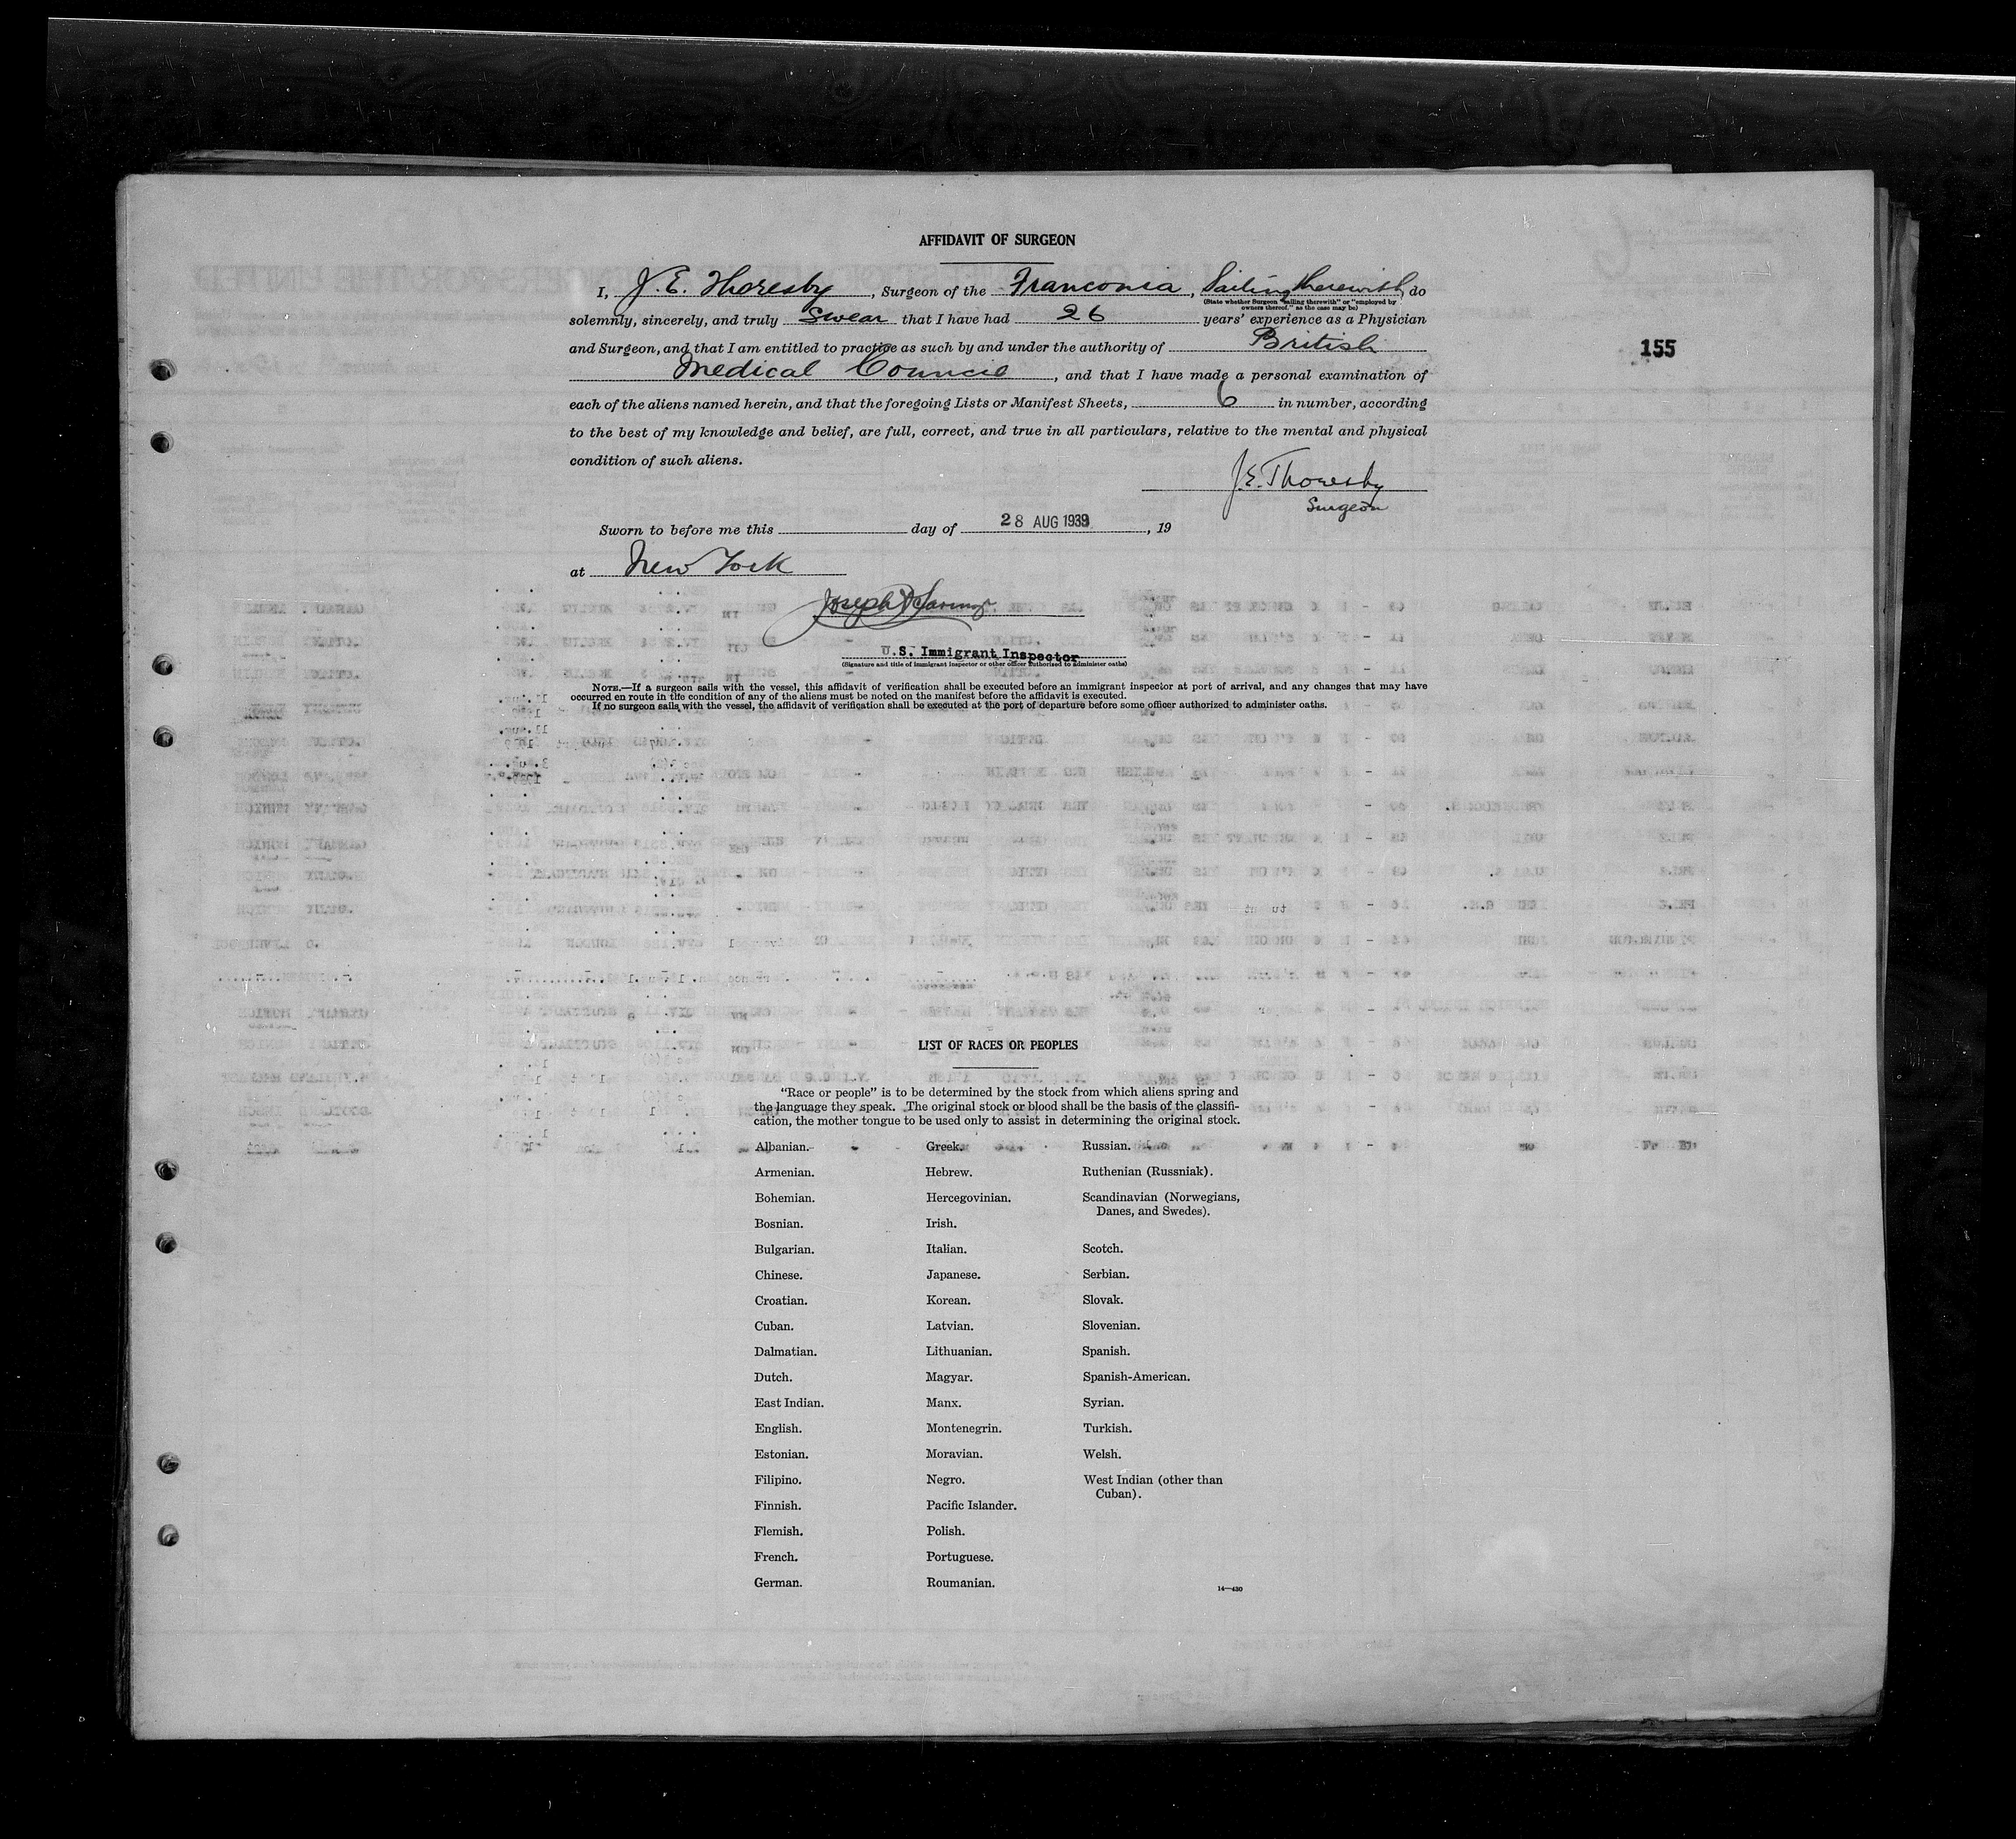 AFFIDAVIT OF SURGEON
I, J. E. Thoresby, Surgeon of the Franconia, Sailing therewith, do
(State whether Surgeon "sailing therewith" or "employed by
owners thereof," as the case may be)
solemnly, sincerely, and truly swear that I have had 26 years' experience as a Physician
and Surgeon, and that I am entitled to practice as such by and under the authority of British
155
Medical Council, and that I have made a personal examination of
each of the aliens named herein, and that the foregoing Lists or Manifest Sheets, 6 in number, according
to the best of my knowledge and belief, are full, correct, and true in all particulars, relative to the mental and physical
condition of such aliens.
J.E. Thoresby
Surgeon
Sworn to before me this day of 28 AUG 1939, 19
at New York
Joseph
U.S. Immigrant Inspector
(Signature and title of immigrant inspector or other officer authorized to administer oaths)
NOTE.—If a surgeon sails with the vessel, this affidavit of verification shall be executed before an immigrant inspector at port of arrival, and any changes that may have
occurred en route in the condition of any of the aliens must be noted on the manifest before the affidavit is executed.
If no surgeon sails with the vessel, the affidavit of verification shall be executed at the port of departure before some officer authorized to administer oaths.
LIST OF RACES OR PEOPLES
"Race or people" is to be determined by the stock from which aliens spring and
the language they speak. The original stock or blood shall be the basis of the classifi-
cation, the mother tongue to be used only to assist in determining the original stock.
Albanian.
Armenian.
Bohemian.
Bosnian.
Bulgarian.
Chinese.
Croatian.
Cuban.
Dalmatian.
Dutch.
East Indian.
English.
Estonian.
Filipino.
Finnish.
Flemish.
French.
German.
Greek.
Hebrew.
Hercegovinian.
Irish.
Italian.
Japanese.
Korean.
Latvian.
Lithuanian.
Magyar.
Manx.
Montenegrin.
Moravian.
Negro.
Pacific Islander.
Polish.
Portuguese.
Roumanian.
Russian.
Ruthenian (Russniak).
Scandinavian (Norwegians,
Danes, and Swedes).
Scotch.
Serbian.
Slovak.
Slovenian.
Spanish.
Spanish-American.
Syrian.
Turkish.
Welsh.
West Indian (other than
Cuban).
14—430